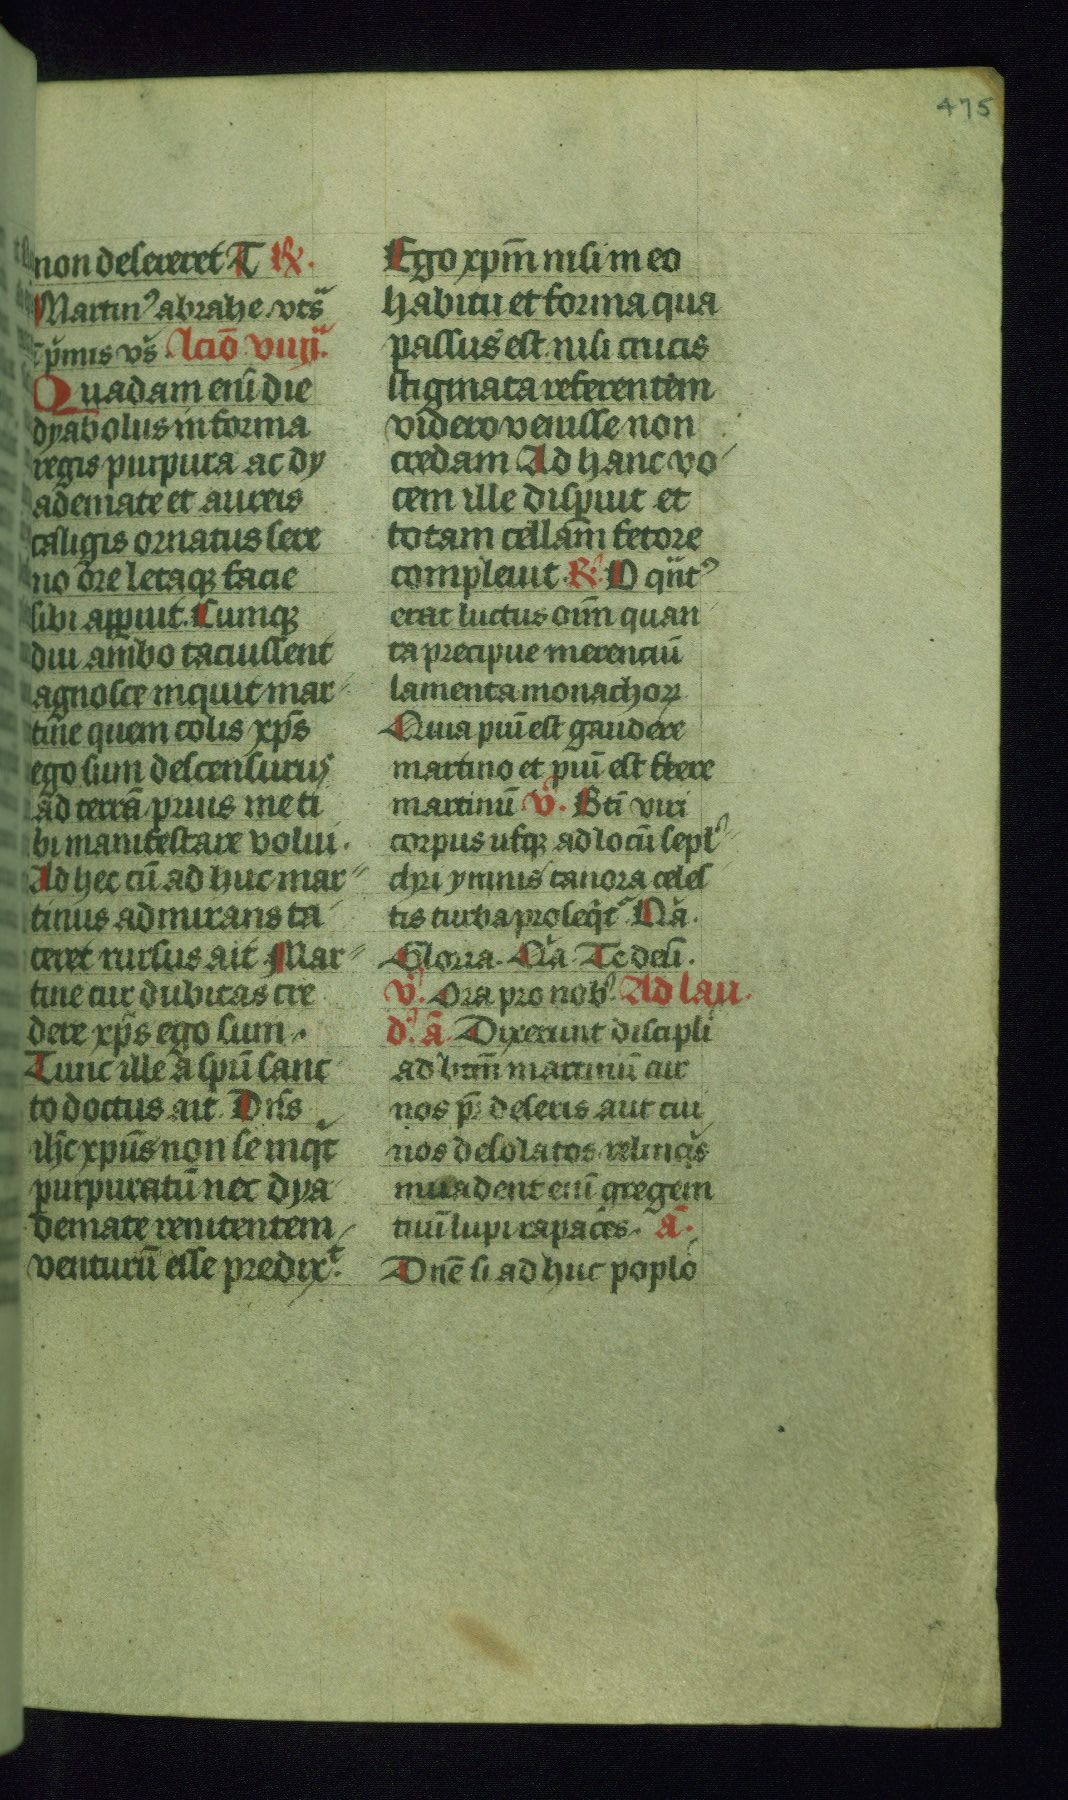 475
non desereret T R̷.
Martinꝰ abrahe. vt sª
ī p̄mis vs̄ Lcıo viijª.
Quadam enī die
dyabolus in forma
regis purpura ac dy
ademate et aureis
caligis ornatus sere
no ōre letaqꝫ facie
sibi apparuit. Cumqꝫ
diu ambo tacuissent
agnosce inquit mar
tine quem colis xp̄s
ego sum descensurus
ad terrā prius me ti
bi manifestare volui.
Ad hec cū ad huc mar
tinus admirans ta
ceret rursus ait Mar
tine cur dubitas cre
dere xp̄s ego sum.
Tunc ille a spū sanc
to doctus ait Dn̄s
ih̄c xp̄us non se inqͥt
purpuratū nec dya
demate renitentem
venturū esse predixᵗ.
Ego xpm̄ nisi in eo
habitu et forma qua
passus est nisi crucis
stigmata referentem
videro venisse non
credam Ad hanc vo
cem ille dispuit et
totam cellam fetore
compleuit R̷. O qn̄tꝰ
erat luctus oīm quan
ta precipue merenciū
lamenta monachoꝝ
Quia piū est gaudere
martino et piū est flere
martinū v̄. Bti viri
corpus usqꝫ ad locū sepl
chri ymnis canora celes
tis turba proseqͥtª Nª.
Gloria. Qª Te desi.
v̄. Ora pro nobꝭ. Ad lau
dꝭ. ā. Dixerunt discipli
ad btm̄ martinū cur
nos pr̄ deseris aut cui
nos desolatos relinqͥs
inuadent enī gregem
tuū lupi rapaces. ā.
Dn̄e si ad huc poplo